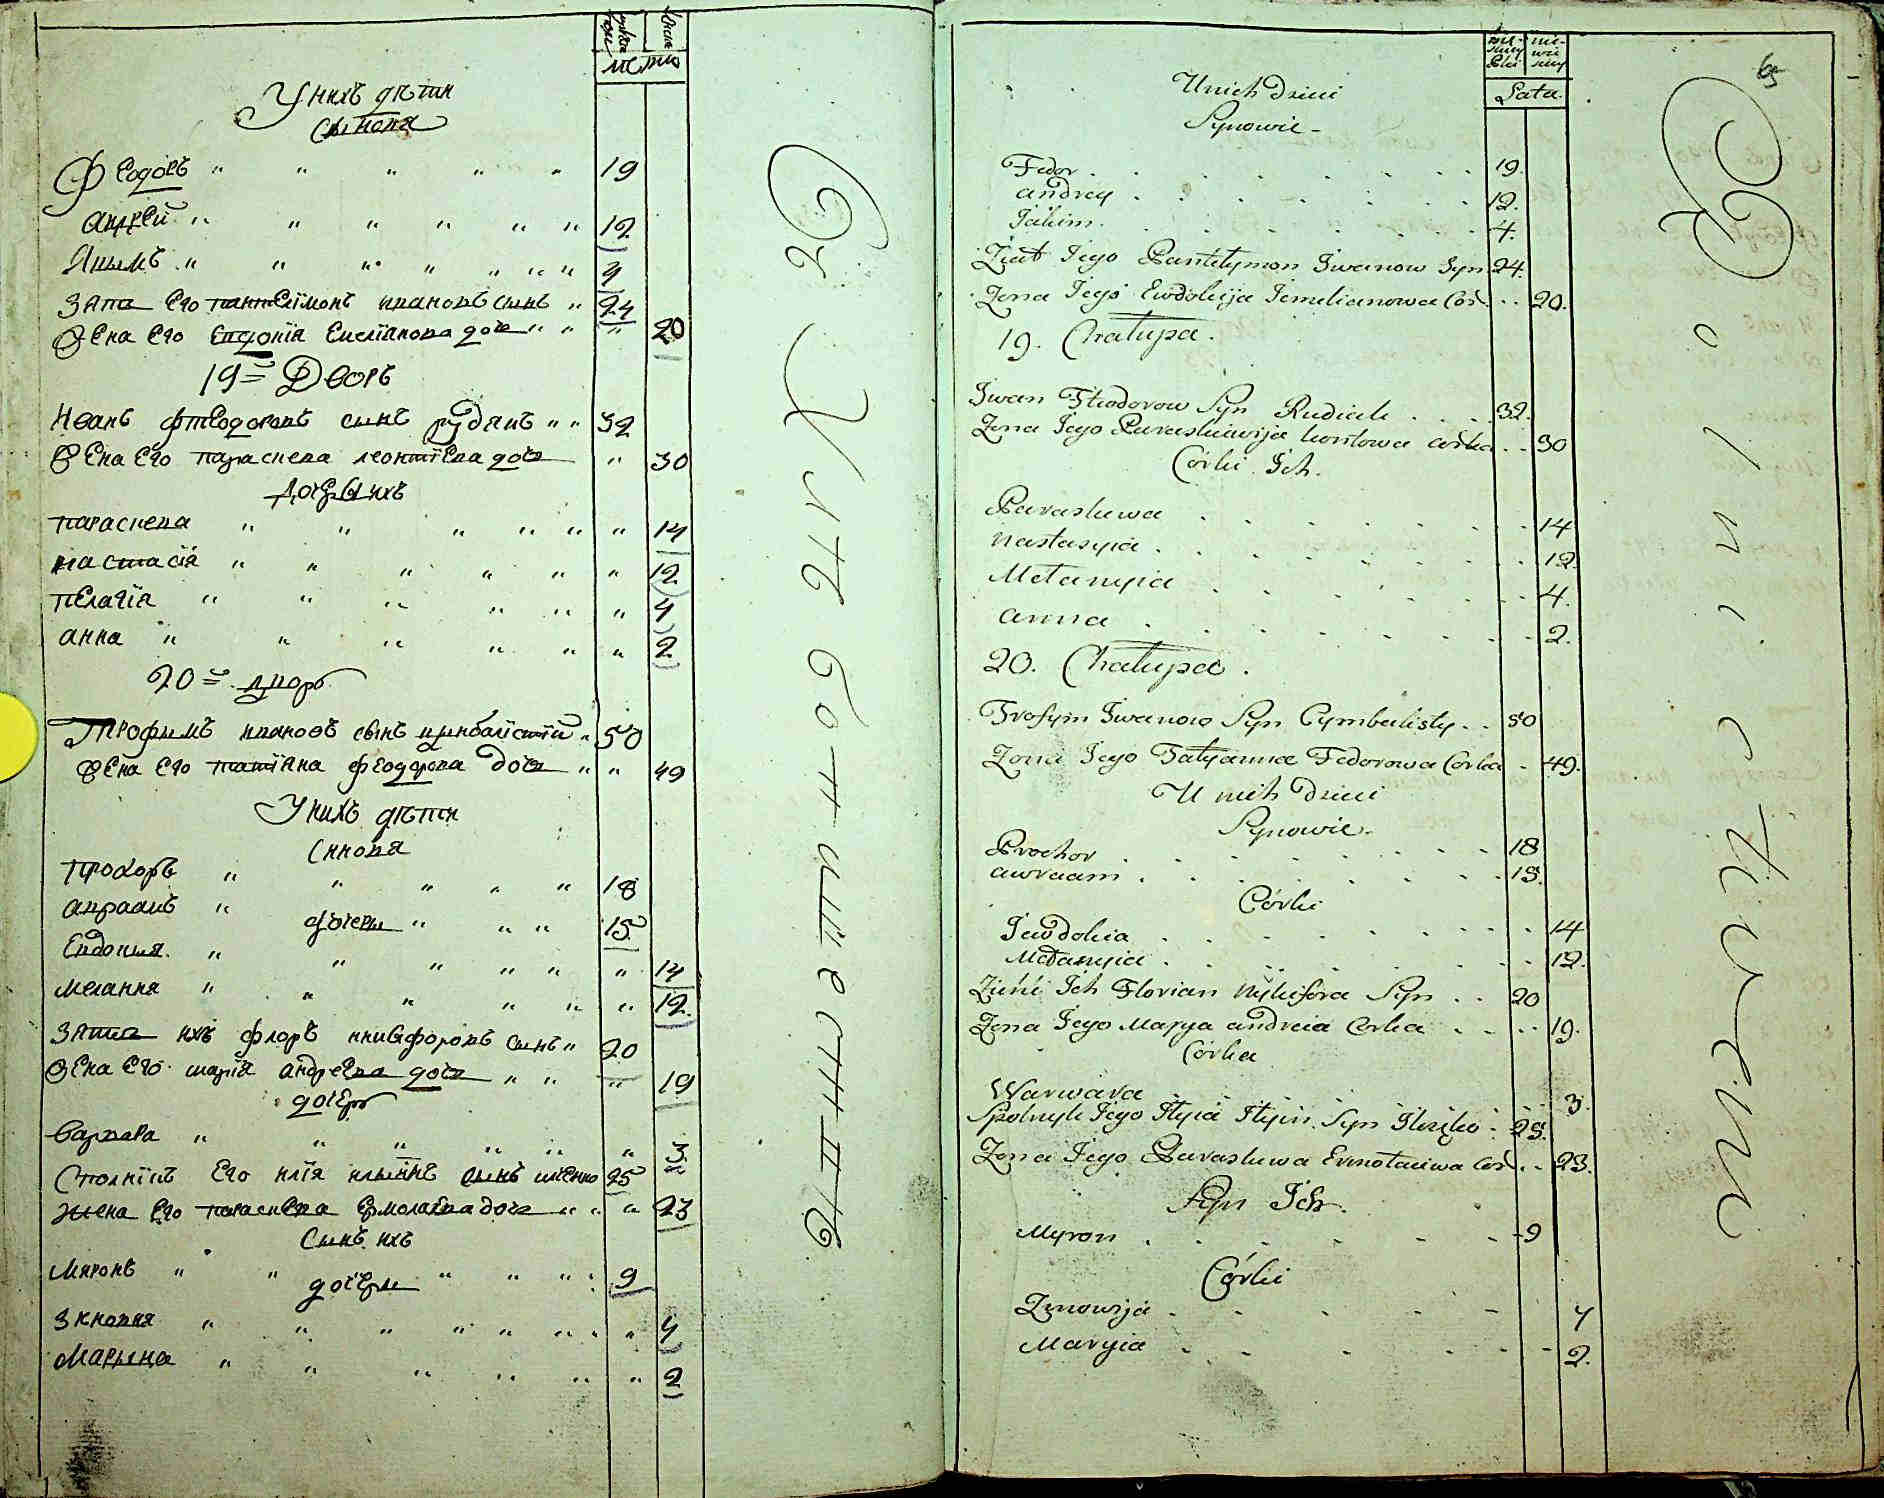 мужеска
женска
лета
У нихъ дѣти
Сынове
Феодоръ " " " " " 19
андрей " " " " " " 12
Якымъ " " " " " " " 4
Зять Его пантелѣмонъ ивановъ сынъ " 24
Жена Его Евдокїя Емелїанова дочь " " " 20
19 = Дворъ
Иванъ фтеодоровъ сынъ рудякъ " " 32
Жена Его параскева леонтїева дочь " 30
Дочеры ихъ
параскева " " " " " " 14
настасїя " " " " " " 12
пелагїя " " " " " " 4
анна " " " " " " 2
20 = дворъ
Трофымъ ивановъ сынъ цымбалїстїй " 50
Жена Его татїяна феодорова дочь " " 49
У нихъ дѣти
Синовя
Прохоръ " " " " " 18
авраамъ " " " " 15
дочеры
Евдокия " " " " " " 14
мелания " " " " " " 12
Зять ихъ флоръ никифоровъ сынъ " 20
Жена Его марїя андреева дочь " " " 19
дочеръ
Варвара " " " " " " 3
Сполнїкъ Его илїя ильинъ сынъ 25
жена Его параскева Ермолаева дочь " " " 23
Сынъ ихъ
миронъ " " " " " " 9
дочеры
Зиновия " " " " " " " 4
Марына " " " " " " 2
Каменицкїй
65
Lata
U nich dzieci
Synowie -
Fedor . . . . . . . 19.
andrey . . . . . . . 12.
Jakim . . . . . . . 4.
Ziat Jego Pantelymon Iwanow Syn 24.
Zona Jego Ewdokija Jemelianowa Cor. . . 20.
19. Chałupa.
Iwan Fteodorow Syn Rudiak . . . 32.
Zona Jego Paraskiewija Leontowa corka . . 30
Córki Ich.
Paraskewa . . . . . . . 14
Nastasyia . . . . . . . 12
Mełanyia . . . . . . . 4.
anna . . . . . . . 2.
20. Chałupa.
Trofym Iwanow Syn Cymbalisty . . 50
Zona Jego Tatyanna Fedorowa Corka . 49.
U nich dzieci
Synowie.
Prochor . . . . . . . 18
awraam . . . . . . . 15.
Córki
Jewdokia . . . . . . . 14
Mełanyia . . . . . . . 12.
Ziat Ich Florian Nykifora Syn . . 20
Zona Jego Marya andreia Corka . . . 19.
Córka
Warwara . . . . . . . 3.
Spolnyk Jego Ilyia Ilyin Syn . 25.
Zona Jego Paraskewa Ermołaiwa Cor. . . 23.
Syn Ich.
Myron . . . . . . 9
Córki
Zynowija . . . . . 4
Maryia . . . . . . 2.